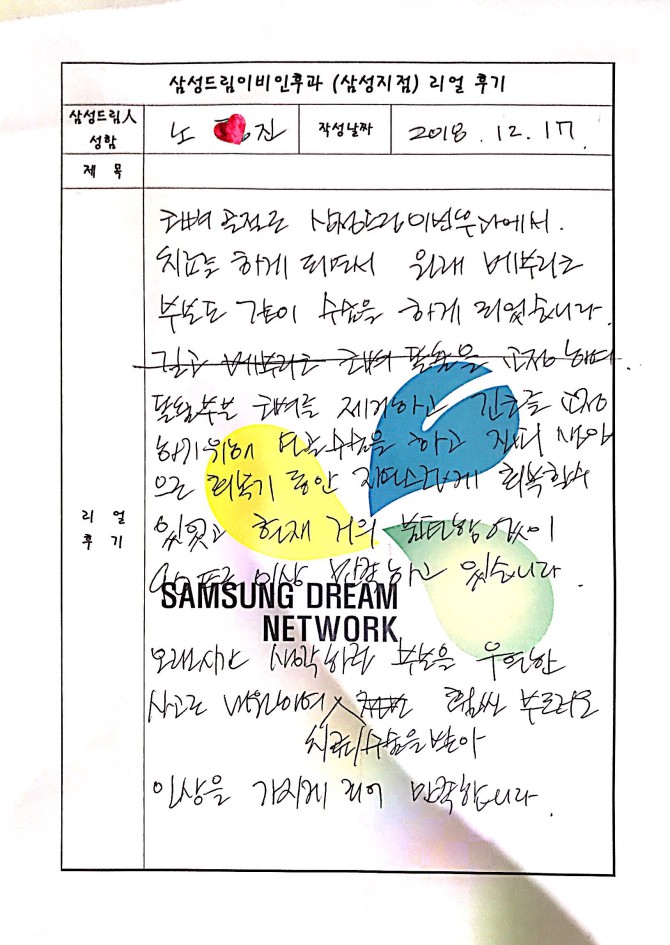 삼성드림이비인후과 (삼성지점) 리얼 후기
삼성드림人 성함
노 진
작성날짜
2018. 12. 17.
제 목
리 얼 후 기
코뼈 골절로 삼성드림이비인후과에서.
치료를 하게 되면서 원래 메부리코
부분도 같이 수술을 하게 되었습니다.
코뼈 교정하며.
부분 코뼈를 제거하고 교정
하기위해 수술을 하고
으로 회복기 동안 자연스럽게 회복할수
있었고 현재 거의 불편함 없이
90프로 이상 만족하고 있습니다.
SAMSUNG DREAM
NETWORK
오랜시간 생각하던 부분을 우연한
사고로 내원하여 훨씬 부드러운
치료/수술을 받아
인상을 가지게 되어 만족합니다.